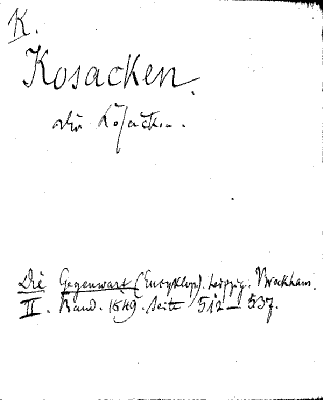 K.
Kosacken.
die Kosacken.
Die Gegenwart (Encyklop). Leipzig. Brockhaus.
II. Band. 1849. Seite 512–537.